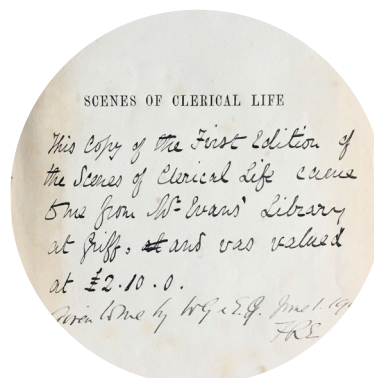 SCENES OF CLERICAL LIFE
This Copy of the First Edition of
the Scenes of Clerical Life came
to me from Mr Evans' Library
at Griff. and was valued
at £2.10.0.
Given to me by W.G. & E.G. June 1. 19
FRE